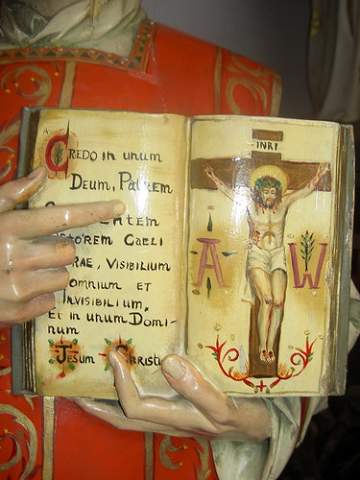 CREDO in unum
Deum, Patrem
Caeli
VISIBILIUM
omnium ET
INVISIBILIUM,
ET in unum Domi-
num
JESUM CHRISTI
INRI
A W